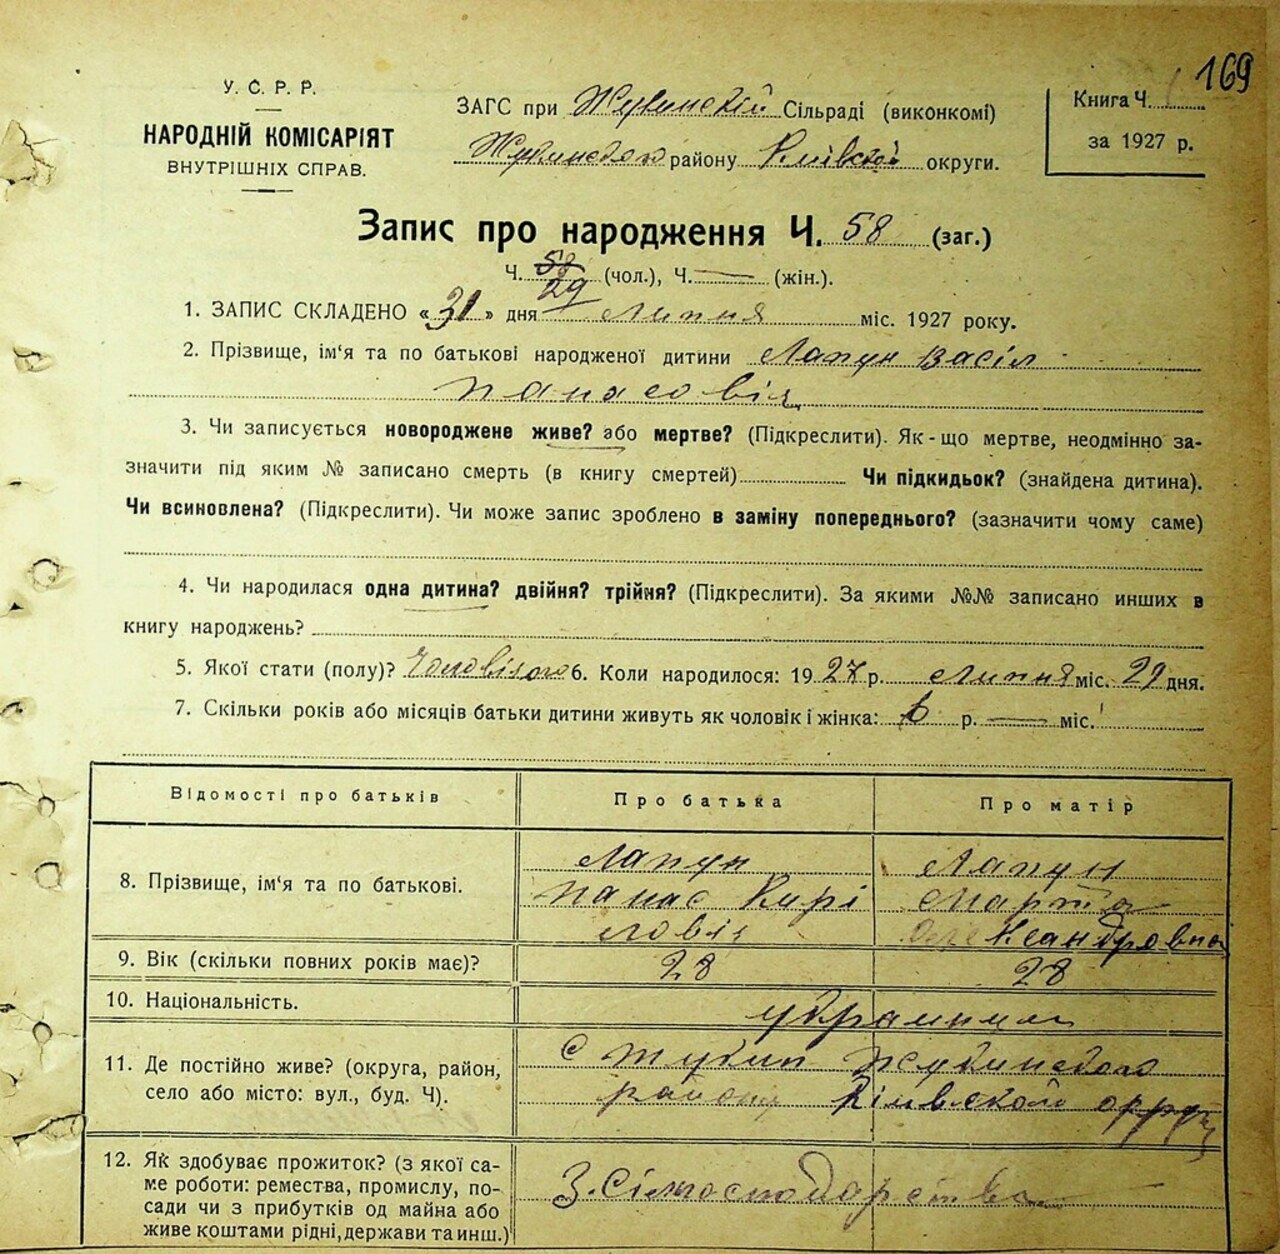 169
У. С. Р. Р.
НАРОДНІЙ КОМІСАРІЯТ
ВНУТРІШНІХ СПРАВ.
ЗАГС при Жукинскій Сільраді (виконкомі)
Жукинского району Киівской округи.
Книга Ч.
за 1927 р.
Запис про народження Ч. 58 (заг.)
Ч. 58 29 (чол.), Ч. — (жін.).
1. ЗАПИС СКЛАДЕНО «31» дня Липня міс. 1927 року.
2. Прізвище, ім'я та по батькові народженої дитини Лапун Васіл
Панасовіч
3. Чи записується новороджене живе? або мертве? (Підкреслити). Як-що мертве, неодмінно за-
значити під яким № записано смерть (в книгу смертей) Чи підкидьок? (знайдена дитина).
Чи всиновлена? (Підкреслити). Чи може запис зроблено в заміну попереднього? (зазначити чому саме)
4. Чи народилася одна дитина? двійня? трійня? (Підкреслити). За якими №№ записано инших в
книгу народжень?
5. Якої стати (полу)? 6. Коли народилося: 1927 р. Липня міс. 29 дня.
7. Скільки років або місяців батьки дитини живуть як чоловік і жінка: 6 р. — міс.
Відомості про батьків
Про батька
Про матір
8. Прізвище, ім'я та по батькові.
Лапун
Панас Кирі
ловіч
Лапун
Марта
Олександровна
9. Вік (скільки повних років має)?
28
28
10. Національність.
11. Де постійно живе? (округа, район,
село або місто: вул., буд. Ч).
С Жукин Жукинского
району Кіівского округу
12. Як здобуває прожиток? (з якої са-
ме роботи: ремества, промислу, по-
сади чи з прибутків од майна або
живе коштами рідні, держави та инш.)
З. Сільгосподарства